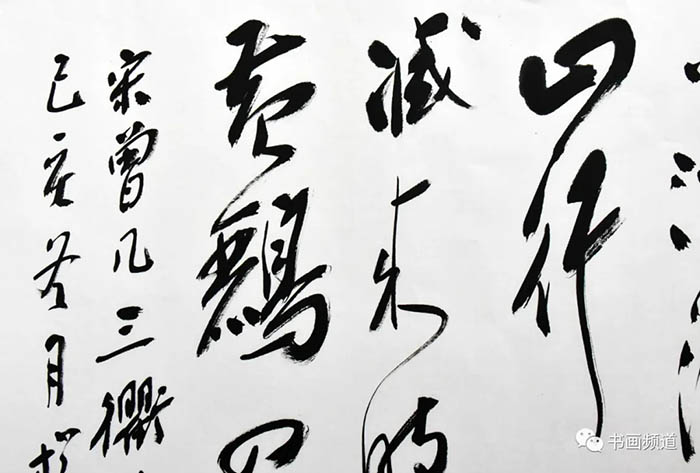 山行
減来时
黄鸝四
宋曾几三衢
己亥 月
书画频道